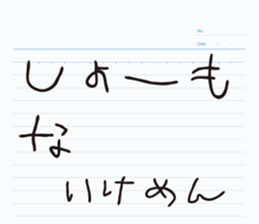 No.
Date
しょーも
な
いけめん